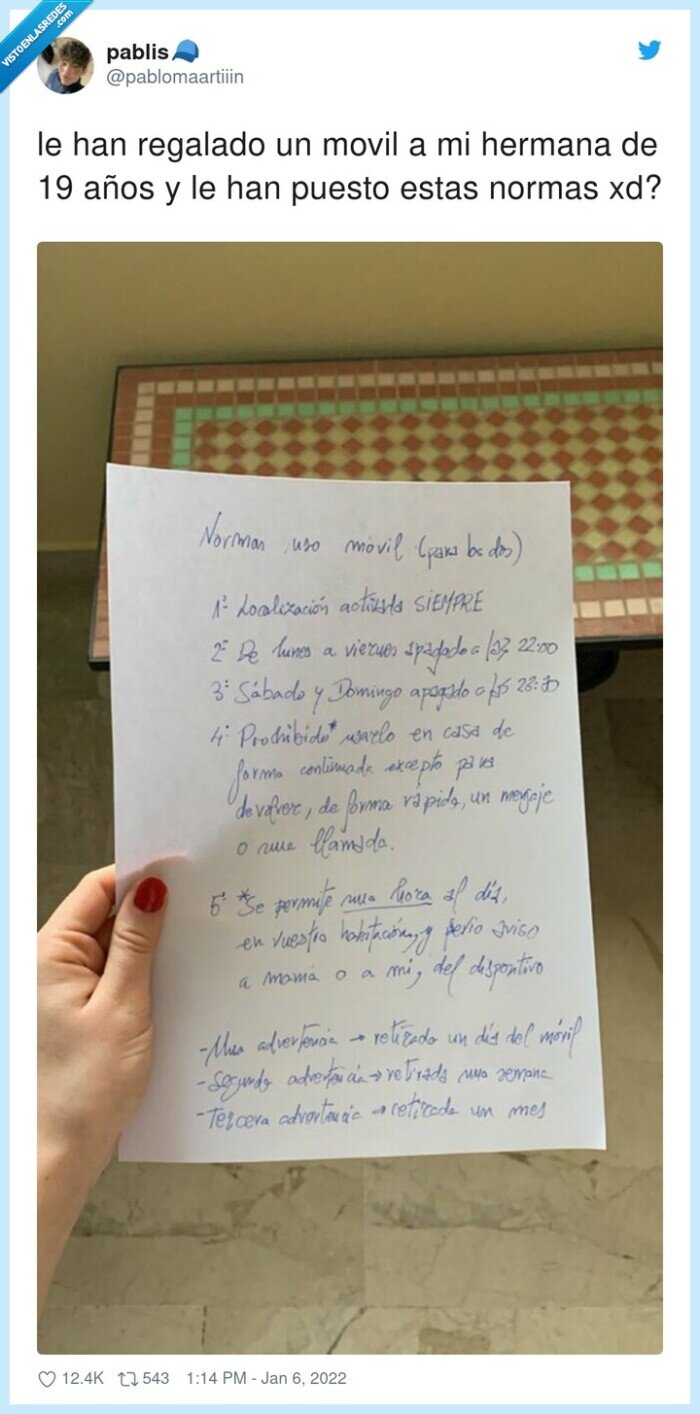 VISTOENLASREDES
.com
pablis
@pablomaartiiin
le han regalado un movil a mi hermana de
19 años y le han puesto estas normas xd?
Normas uso móvil (para los dos)
1ª Localización activada SIEMPRE
2ª De lunes a viernes apagado a las 22:00
3ª Sábado y Domingo apagado a las 23:30
4ª Prohibido* usarlo en casa de
forma continuada excepto para
devolver, de forma rápida, un mensaje
o una llamada.
5ª *Se permite una hora al día,
en vuestra habitación, y previo aviso
a mamá o a mí, del dispositivo
-Una advertencia → retirado un día del móvil
-Segunda advertencia → retirada una semana
-Tercera advertencia → retirada un mes
12.4K 543 1:14 PM - Jan 6, 2022